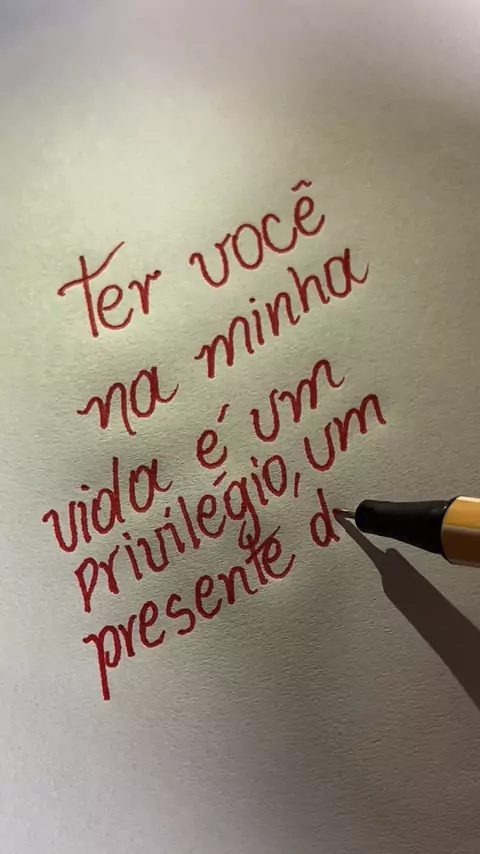 Ter você
na minha
vida é um
privilégio, um
presente d